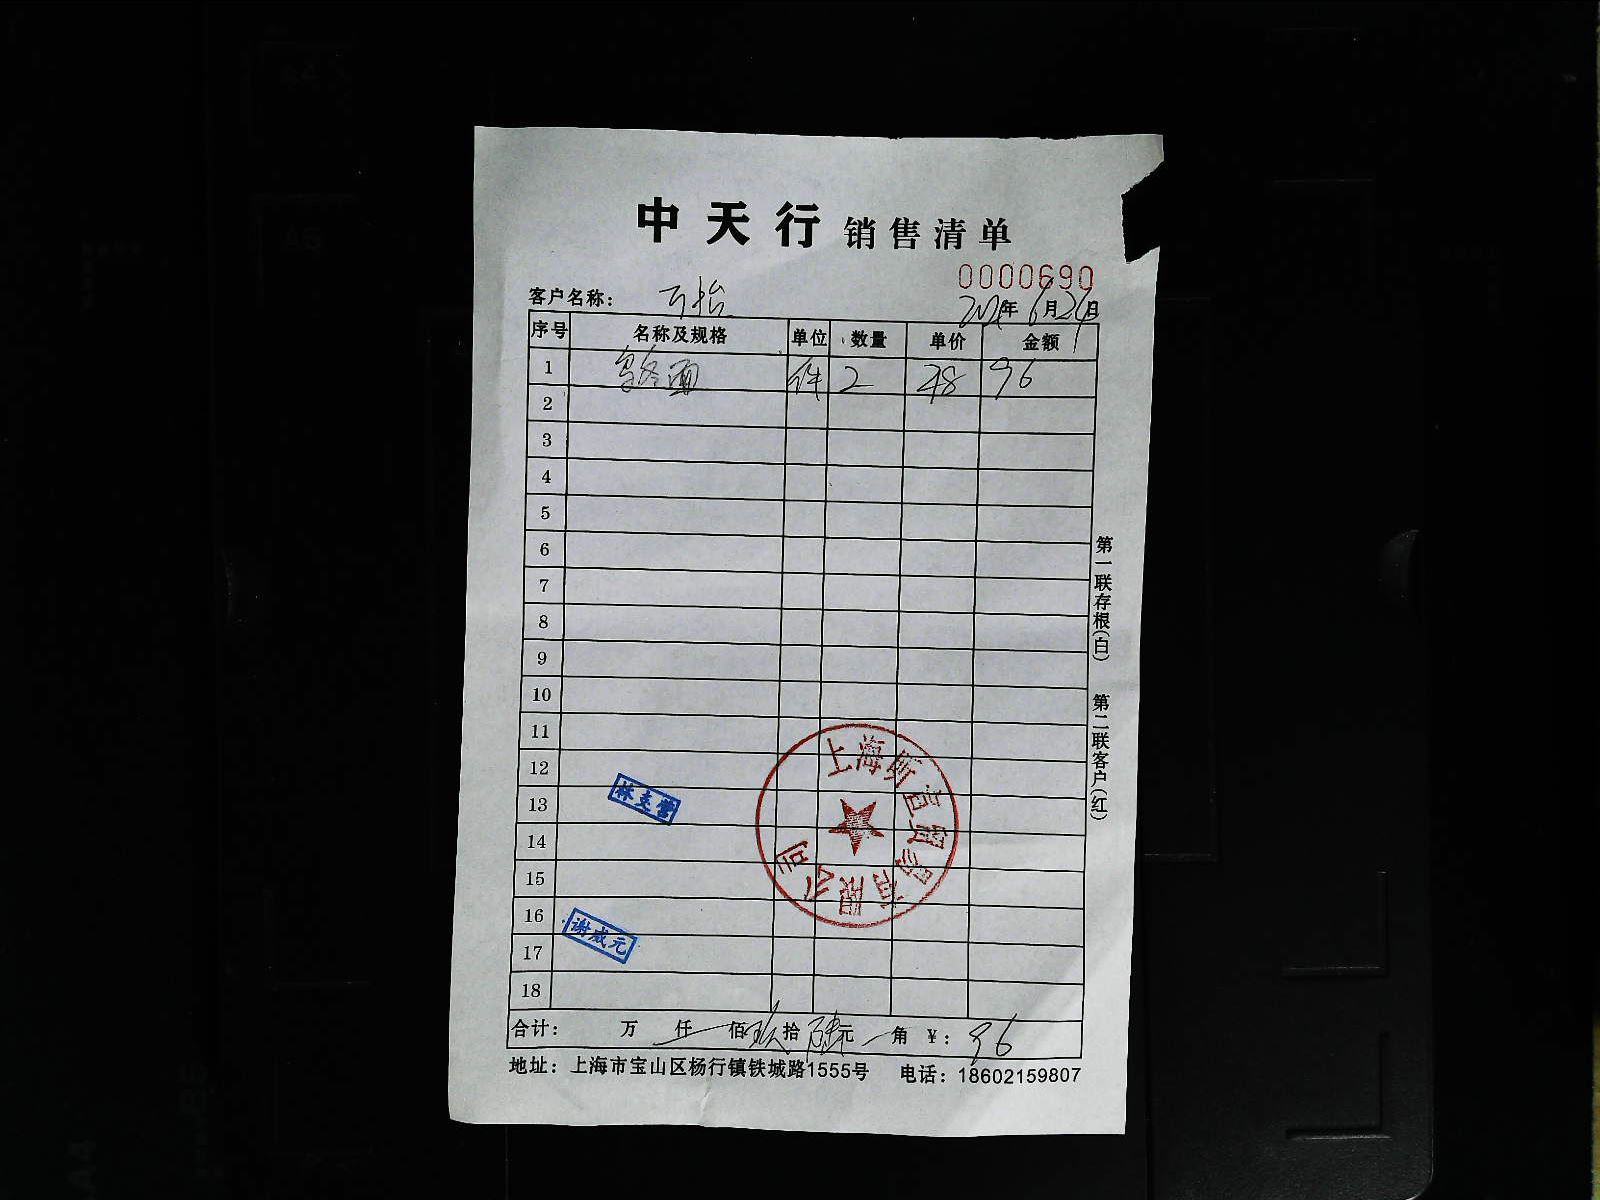 中天行 销售清单
0000690
客户名称： 万怡
年 6月24日
序号 名称及规格 单位 数量 单价 金额
1 乌冬面 件 2 48 96
2
3
4
5
6
7
8
9
10
11
12
13
14
15
16
17
18
林支营
谢成元
上海昕宣贸易有限公司
合计： 万 仟 佰 玖拾 陆元 角 ￥: 96
地址：上海市宝山区杨行镇铁城路1555号 电话：18602159807
第一联存根(白) 第二联客户(红)